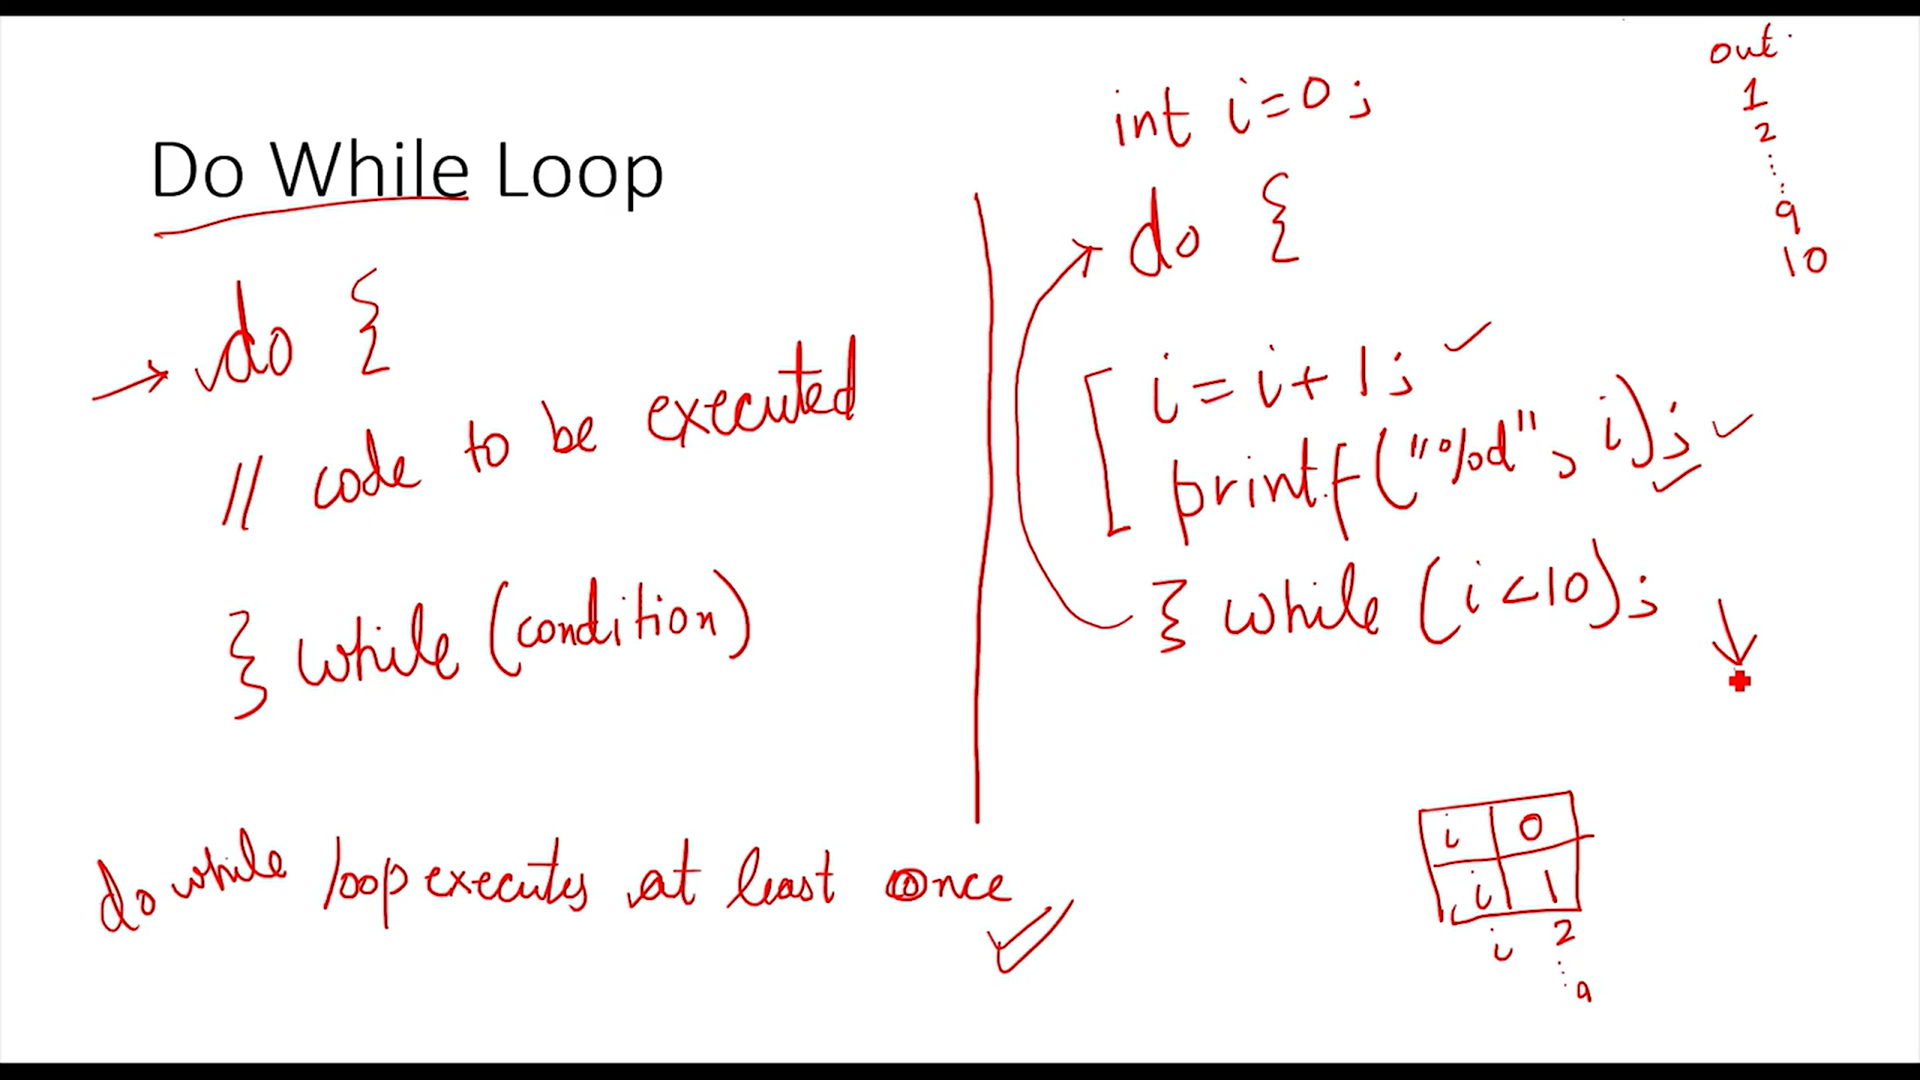 Do While Loop
do {
// code to be executed
} while (condition)
do while loop executes at least once
int i=0;
do {
i = i + 1;
printf("%d", i);
} while (i<10);
out
1
2
...
9
10
i 0
i 1
i 2
...
9